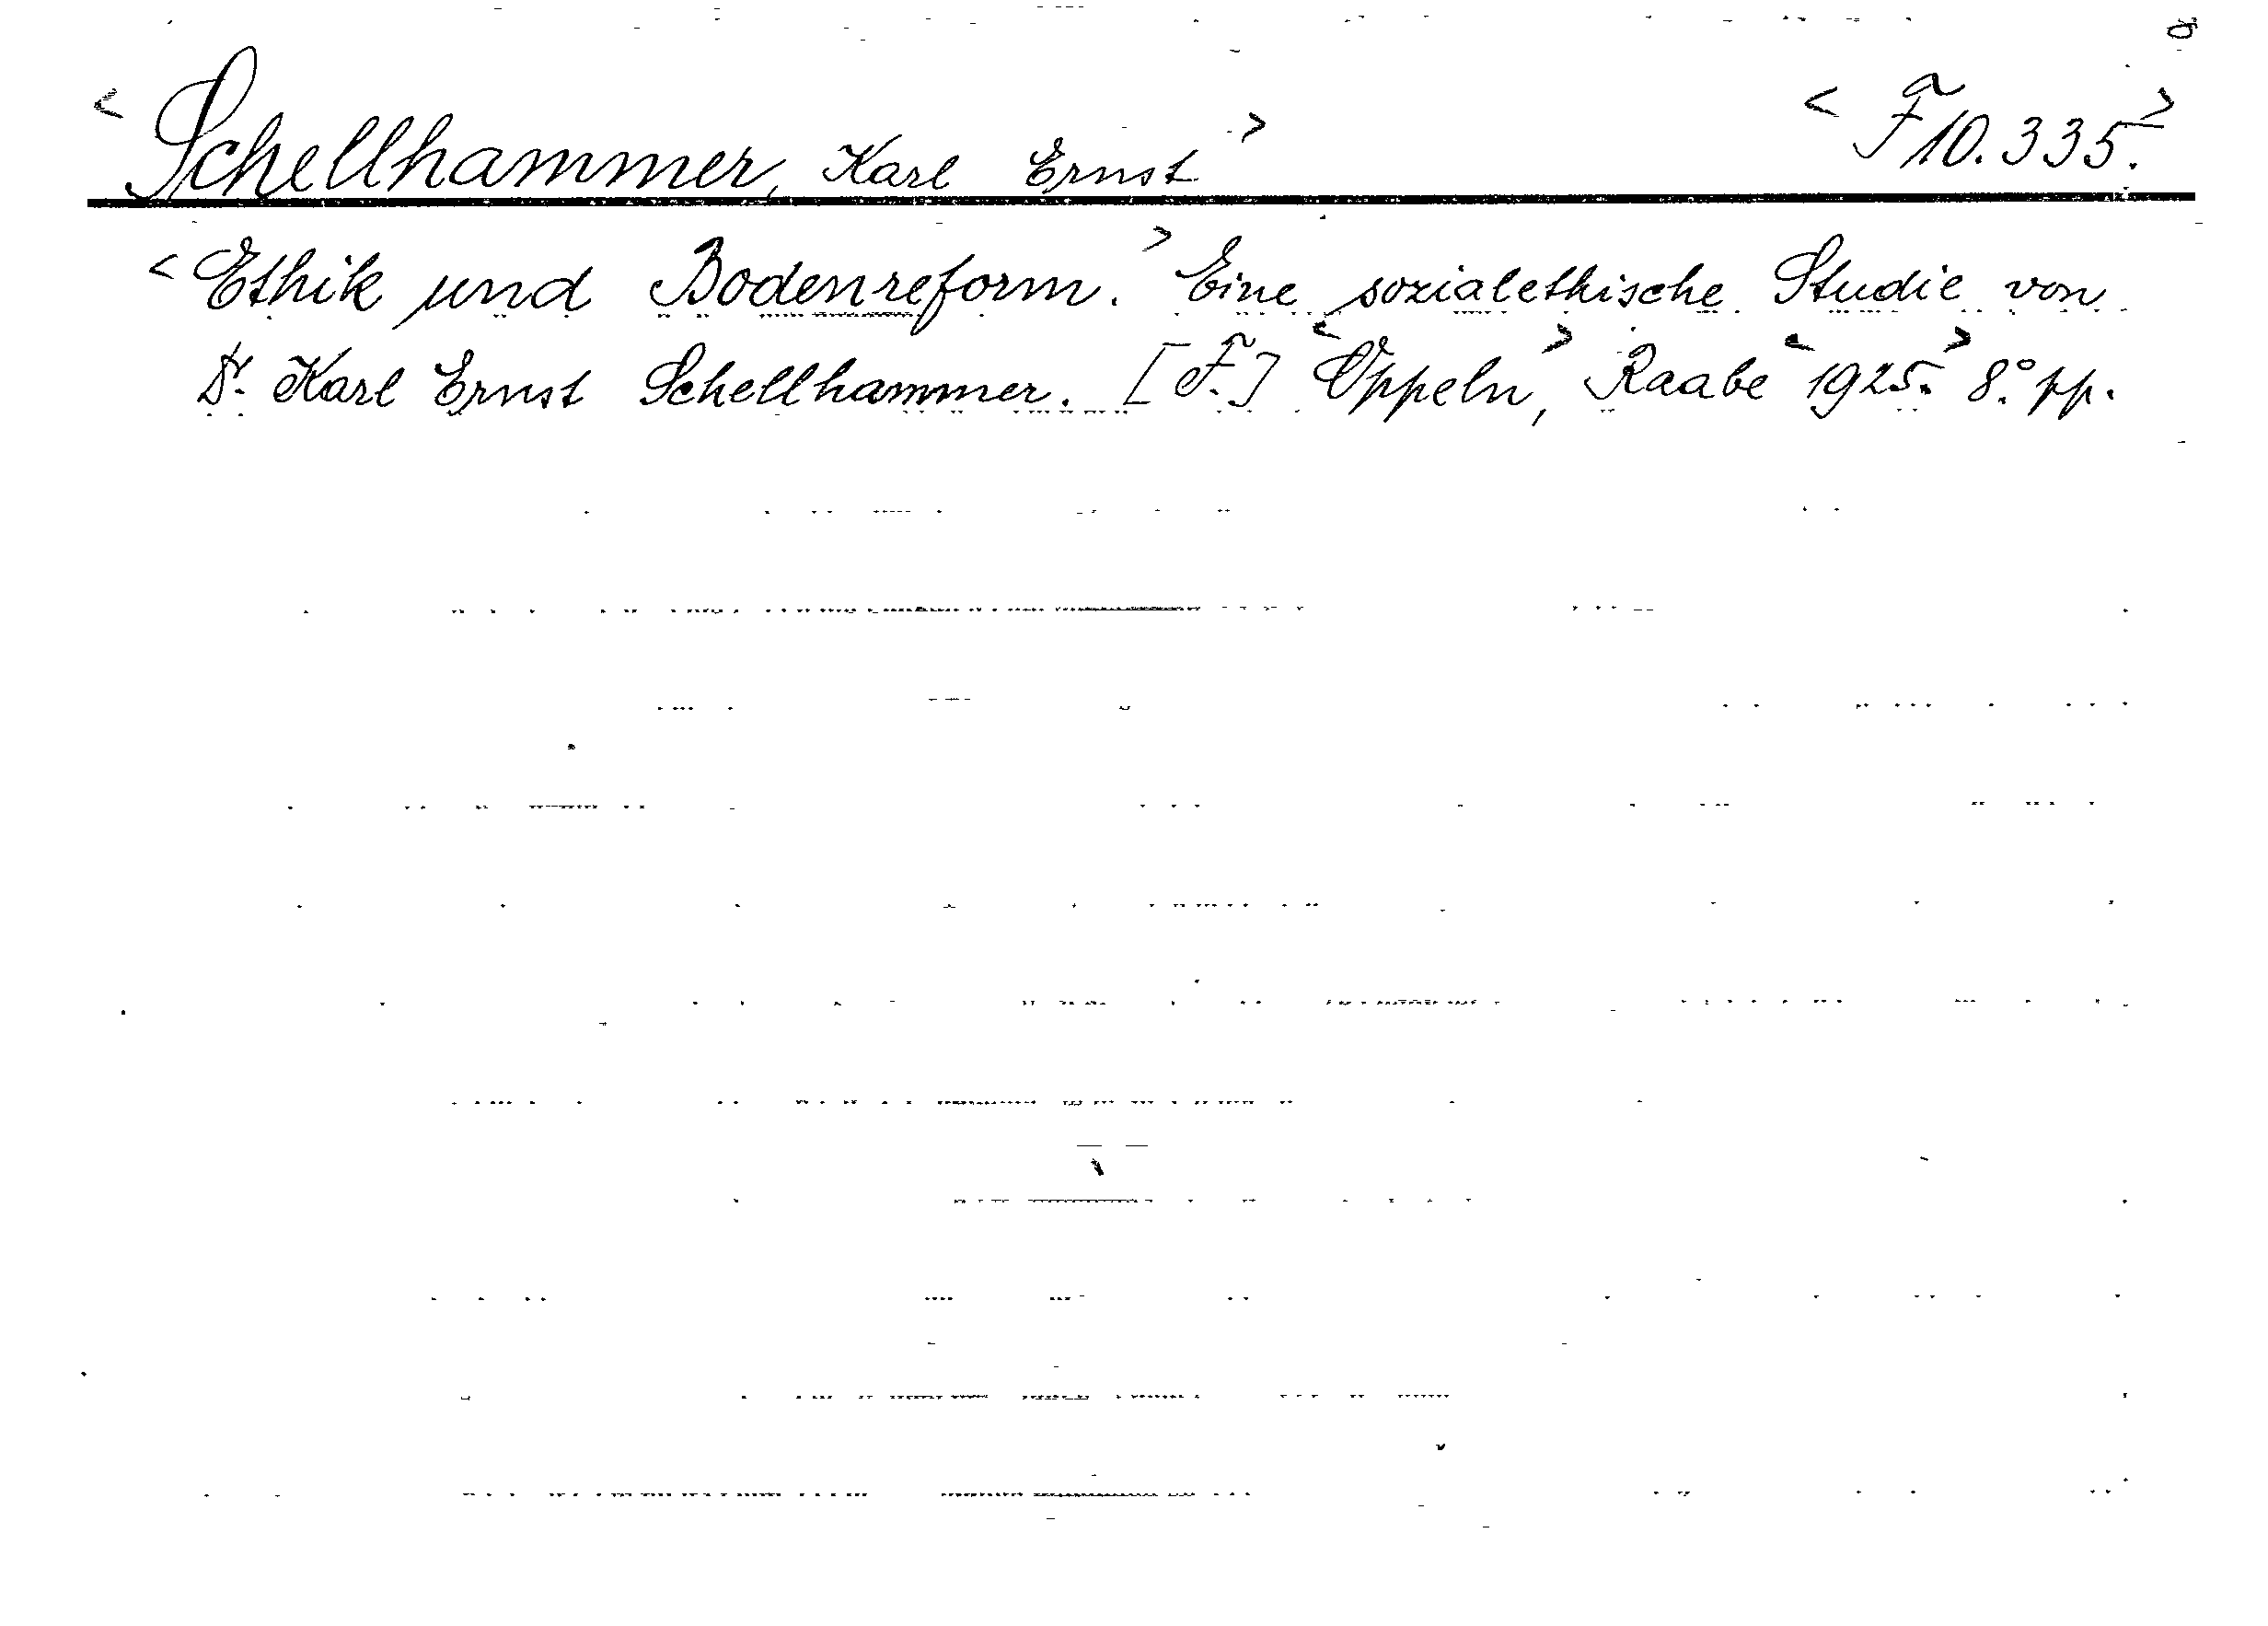 < Schellhammer, Karl Ernst > < F 10.335. >
< Ethik und Bodenreform. > Eine sozialethische Studie von
Dr. Karl Ernst Schellhammer. [F.] < Oppeln, > Raabe < 1925. > 8.° pp.